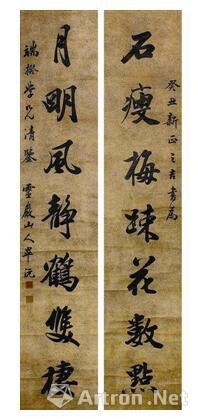 癸丑新正之吉書為
石瘦梅踈花數點
月明風靜鶴雙棲
端揆學兄清鑒 靈巖山人畢沅
Artron.Net